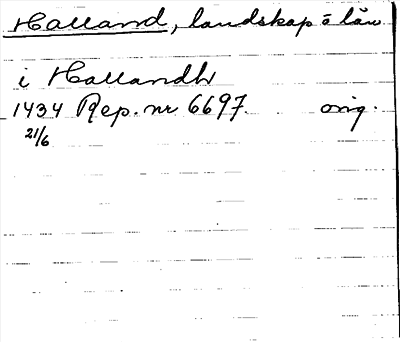 Halland, landskap o län
i Hallandh
1434 Rep. nr 6697. orig.
21/6